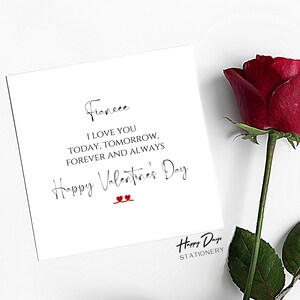 Fiancée
I LOVE YOU
TODAY, TOMORROW,
FOREVER AND ALWAYS
Happy Valentine's Day
Happy Days
STATIONERY